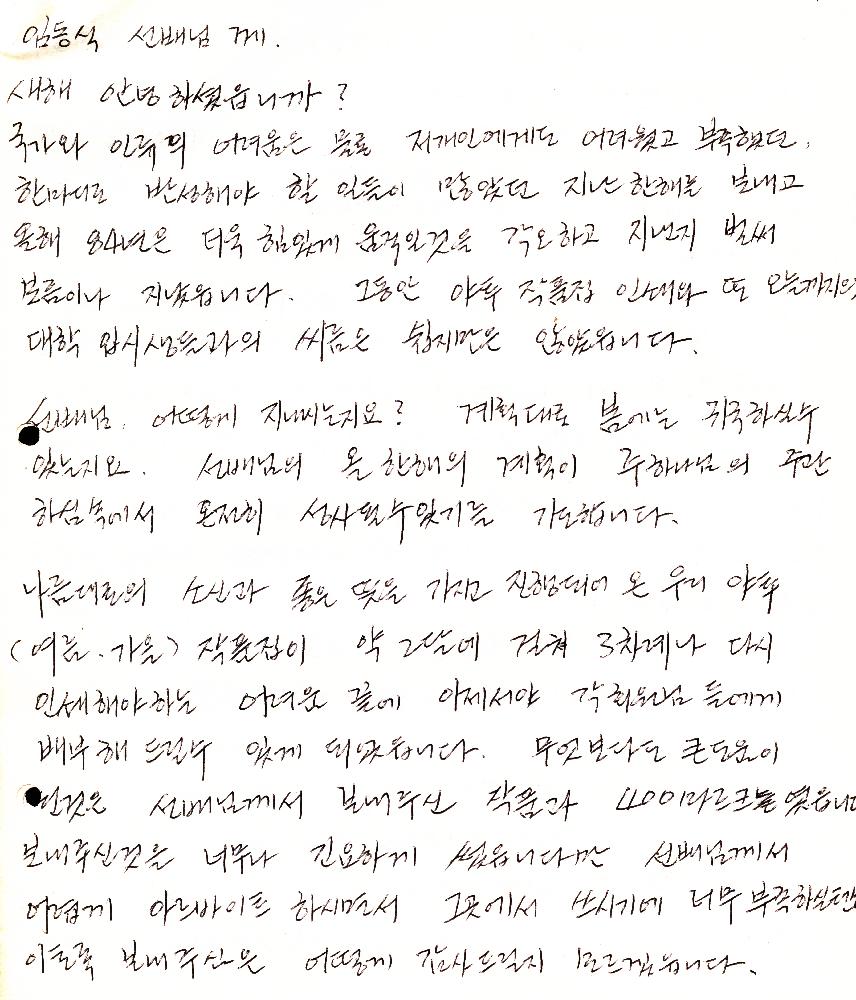 임동식 선배님 께.
새해 안녕하셨읍니까?
국가와 인류의 어려움은 물론 저개인에게도 어려웠고 부족했던,
한마디로 반성해야 할 일들이 많았던 지난 한해를 보내고
올해 84년은 더욱 힘있게 움직일것을 각오하고 지난지 벌써
보름이나 지났읍니다. 그동안 야투 작품집 인쇄와 또 오늘까지의
대학 입시생들과의 씨름은 쉽지만은 않았읍니다.
선배님. 어떻게 지내시는지요? 계획대로 봄에는 귀국하실수
있는지요. 선배님의 올 한해의 계획이 주하나님의 주관
하심속에서 온전히 성사될수있기를 기도합니다.
나름대로의 소신과 좋은 뜻을 가지고 진행되어 온 우리 야투
(여름.가을) 작품집이 약 2달에 걸쳐 3차례나 다시
인쇄해야하는 어려운 끝에 이제서야 각 회원님 들에게
배부해 드릴수 있게 되었읍니다. 무엇보다도 큰도움이
된것은 선배님께서 보내주신 작품과 400마르크 였읍니다
보내주신것을 너무나 긴요하게 썼읍니다만 선배님께서
어렵게 아르바이트 하시면서 그곳에서 쓰시기에 너무 부족하실텐데
이토록 보내주심은 어떻게 감사드릴지 모르겠읍니다.